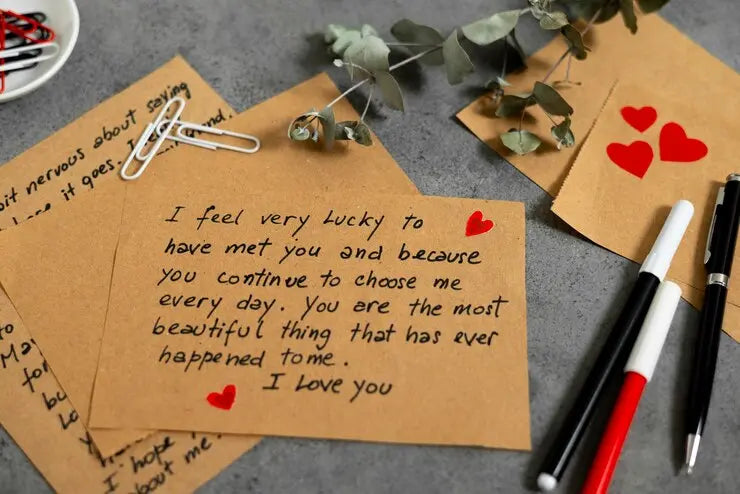 bit nervous about saying
it goes. I
and
I feel very Lucky to
have met you and because
you continue to choose me
every day. You are the most
beautiful thing that has ever
happened to me.
I Love you
to
for
I hope
about me.